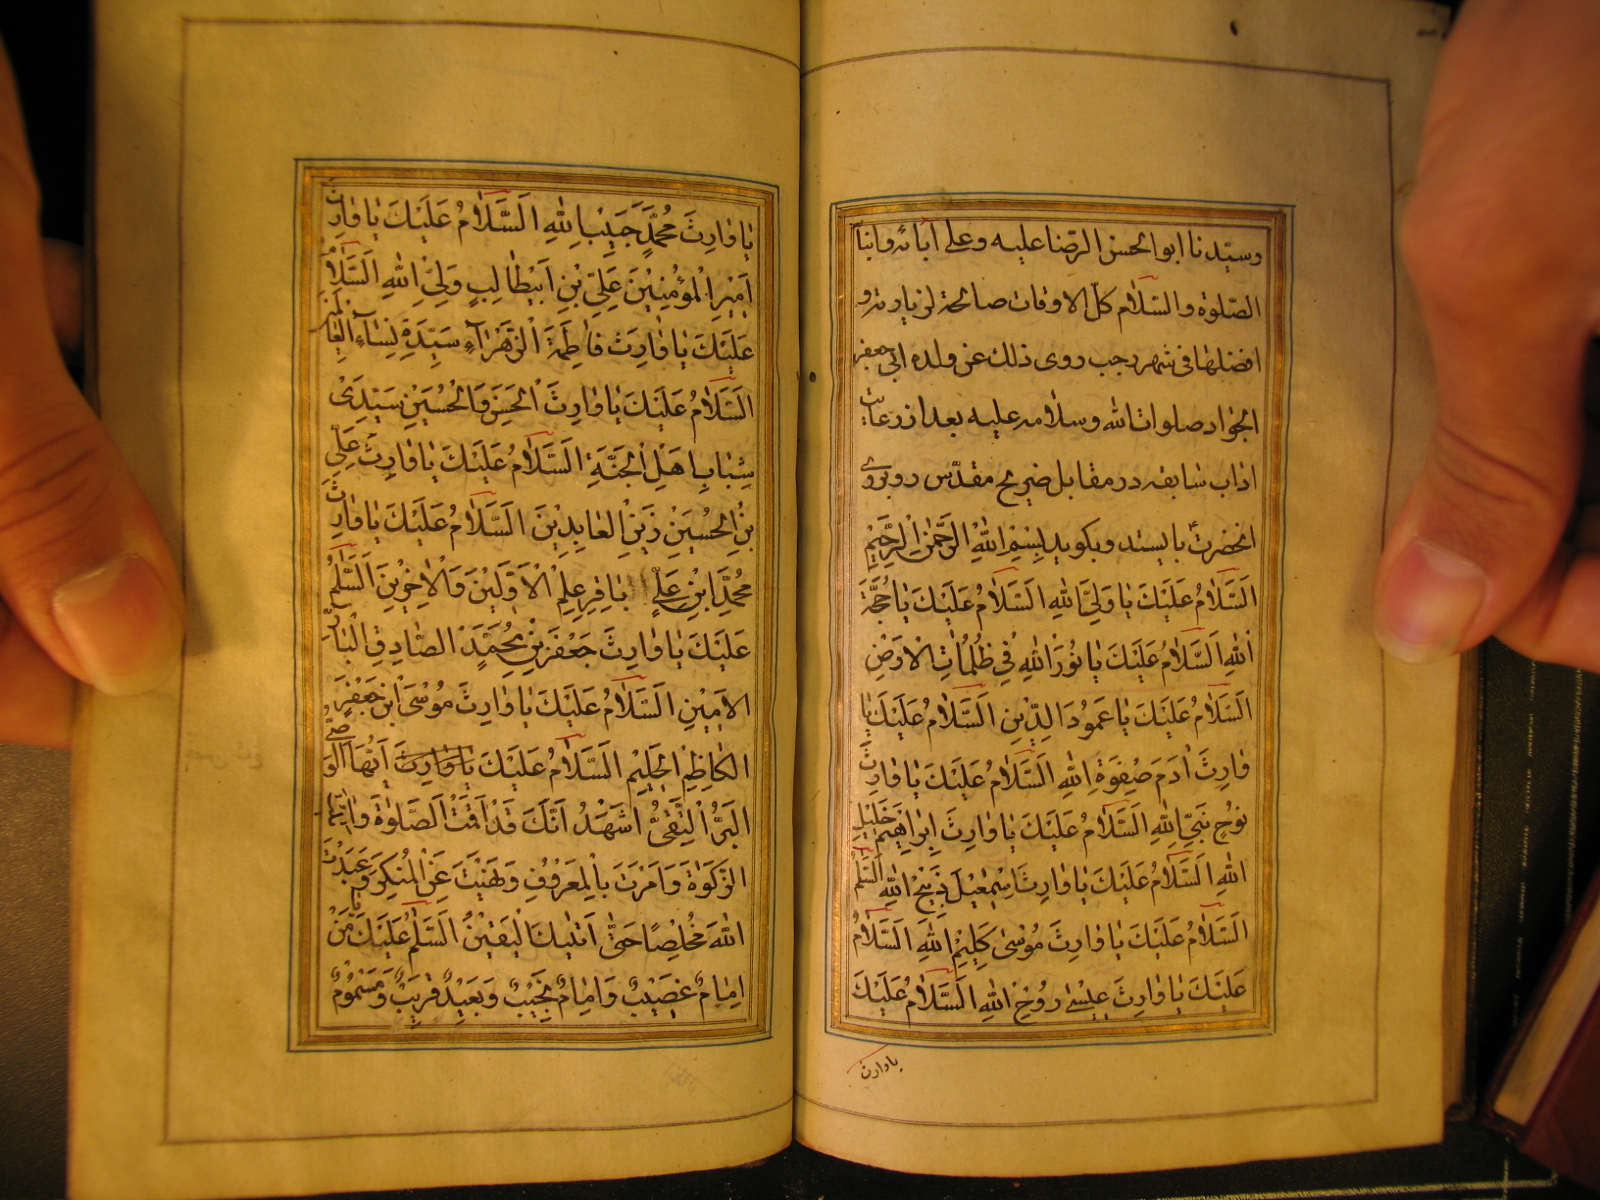 وسيّدنا ابو الحسن الرّضا عليه وعلى آبائه وابنا
الصّلوة والسّلام كلّ الاوقات صالحة لزيارته و
افضلها فى شهر رجب روى ذلك عن ولده ابى جعفر
الجواد صلوات الله وسلامه عليه بعد از رعايت
اداب سابقه در مقابل ضريح مقدّس روبروى
انحضرت بايستد وبكويد بِسْمِ اللهِ الرَّحْمٰنِ الرَّحِيْمِ
اَلسَّلَامُ عَلَيْكَ يَا وَلِيَّ اللهِ اَلسَّلَامُ عَلَيْكَ يَا حُجَّةَ
اللهِ اَلسَّلَامُ عَلَيْكَ يَا نُوْرَ اللهِ فِي ظُلُمَاتِ الْاَرْضِ
اَلسَّلَامُ عَلَيْكَ يَا عَمُوْدَ الدِّيْنِ اَلسَّلَامُ عَلَيْكَ يَا
وَارِثَ اٰدَمَ صِفْوَةِ اللهِ اَلسَّلَامُ عَلَيْكَ يَا وَارِثَ
نُوْحٍ نَبِيِّ اللهِ اَلسَّلَامُ عَلَيْكَ يَا وَارِثَ اِبْرَاهِيْمَ خَلِيْلِ
اللهِ اَلسَّلَامُ عَلَيْكَ يَا وَارِثَ اِسْمٰعِيْلَ ذَبِيْحِ اللهِ اَلسَّلٰمُ
اَلسَّلَامُ عَلَيْكَ يَا وَارِثَ مُوْسٰى كَلِيْمِ اللهِ اَلسَّلَامُ
عَلَيْكَ يَا وَارِثَ عِيْسٰى رُوْحِ اللهِ اَلسَّلَامُ عَلَيْكَ
يا وارث
يَا وَارِثَ مُحَمَّدٍ حَبِيْبِ اللهِ اَلسَّلَامُ عَلَيْكَ يَا وَارِثَ
اَمِيْرِ الْمُؤْمِنِيْنَ عَلِيِّ بْنِ اَبِيْطَالِبٍ وَلِيِّ اللهِ اَلسَّلَامُ
عَلَيْكَ يَا وَارِثَ فَاطِمَةَ الزَّهْرَاءِ سَيِّدَةِ نِسَاءِ الْعَالَمِيْنَ
اَلسَّلَامُ عَلَيْكَ يَا وَارِثَ الْحَسَنِ وَالْحُسَيْنِ سَيِّدَىْ
شَبَابِ اَهْلِ الْجَنَّةِ اَلسَّلَامُ عَلَيْكَ يَا وَارِثَ عَلِيِّ
بْنِ الْحُسَيْنِ زَيْنِ الْعَابِدِيْنَ اَلسَّلَامُ عَلَيْكَ يَا وَارِثَ
مُحَمَّدِ ابْنِ عَلِيٍّ بَاقِرِ عِلْمِ الْاَوَّلِيْنَ وَالْاٰخِرِيْنَ اَلسَّلٰمُ
عَلَيْكَ يَا وَارِثَ جَعْفَرِ بْنِ مُحَمَّدٍ الصَّادِقِ الْبَارِّ
الْاَمِيْنِ اَلسَّلَامُ عَلَيْكَ يَا وَارِثَ مُوْسَى ابْنِ جَعْفَرٍ
الْكَاظِمِ الْحَلِيْمِ اَلسَّلَامُ عَلَيْكَ يَا وَارِثَ اَيُّهَا الْوَصِيُّ
الْبَرُّ التَّقِىُّ اَشْهَدُ اَنَّكَ قَدْ اَقَمْتَ الصَّلٰوةَ وَاٰتَيْتَ
الزَّكٰوةَ وَاَمَرْتَ بِالْمَعْرُوْفِ وَنَهَيْتَ عَنِ الْمُنْكَرِ وَعَبَدْتَ
اللهَ مُخْلِصًا حَتّٰى اَتٰيكَ الْيَقِيْنُ اَلسَّلٰمُ عَلَيْكَ مِنْ
اِمَامٍ عَصِيْبٍ وَاِمَامٍ نَجِيْبٍ وَبَعِيْدٍ قَرِيْبٍ وَمَسْمُوْمٍ